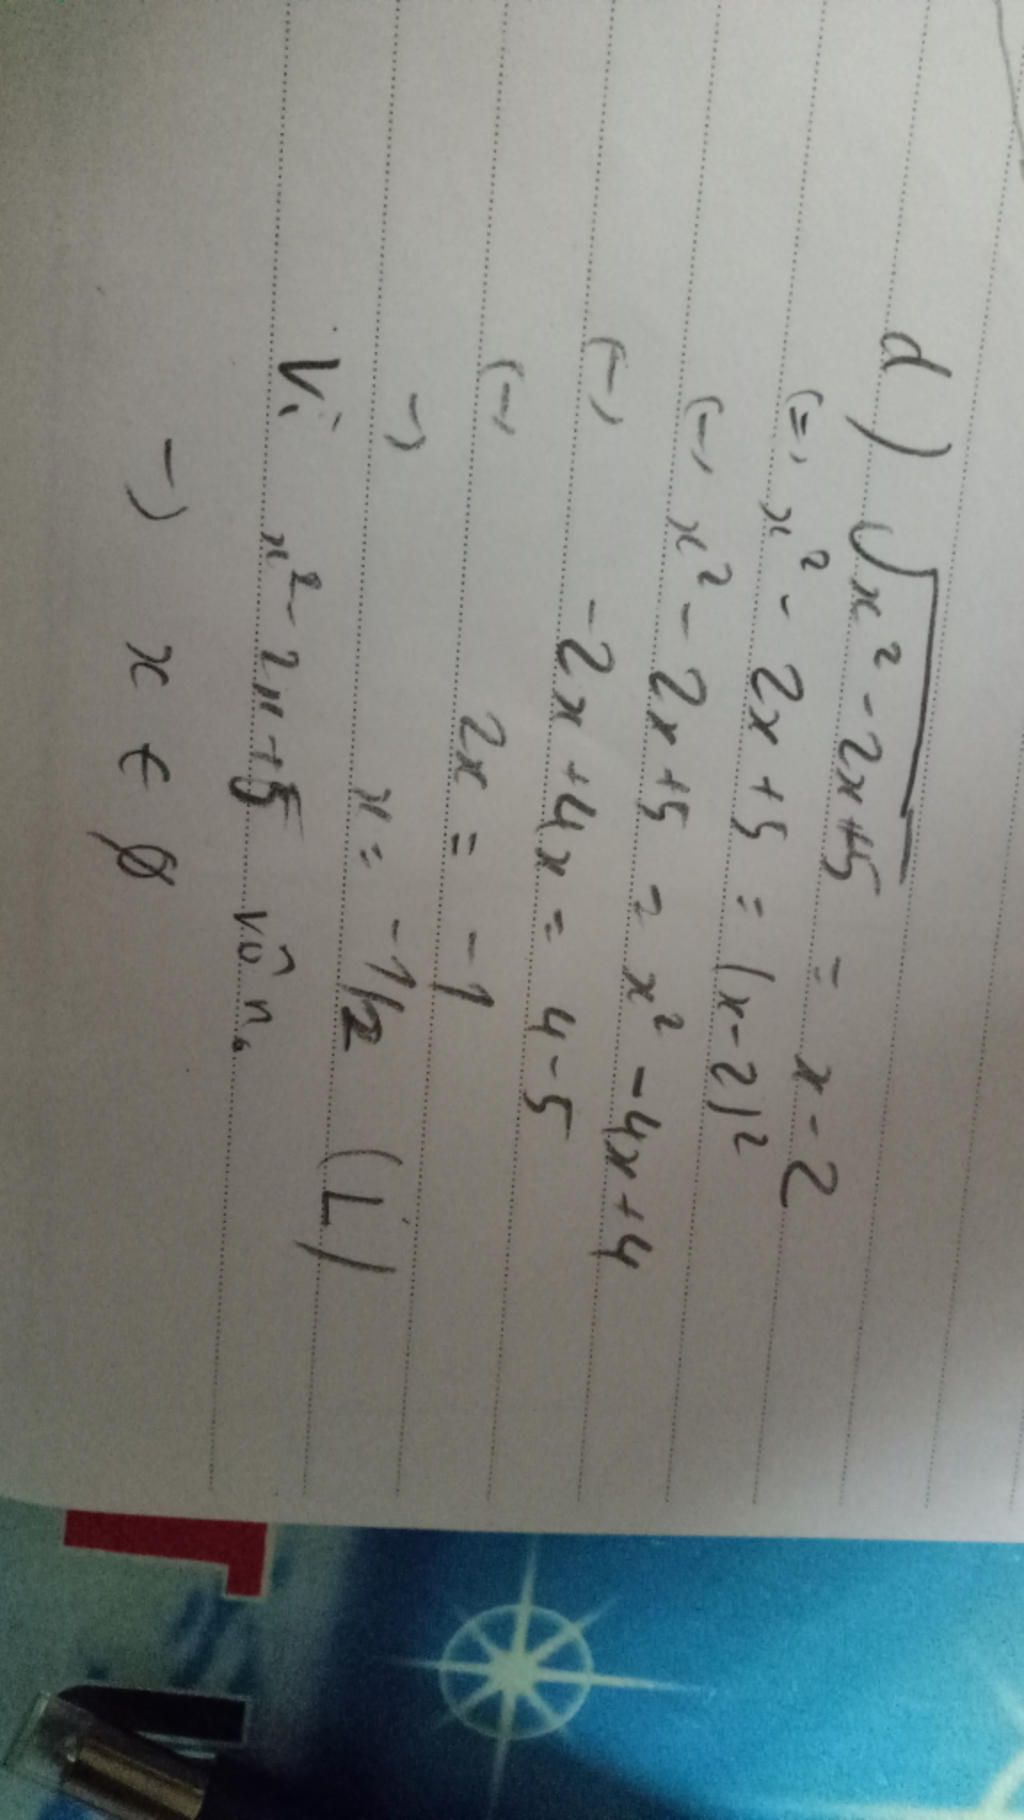 d) √x² - 2x + 5 = x - 2
(=) x² - 2x + 5 = (x - 2)²
(-) x² - 2x + 5 = x² - 4x + 4
(-) -2x + 4x = 4 - 5
(-) 2x = -1
-) x = -1/2 (L)
Vì x² - 2x + 5 vô n.
-) x ∈ ∅